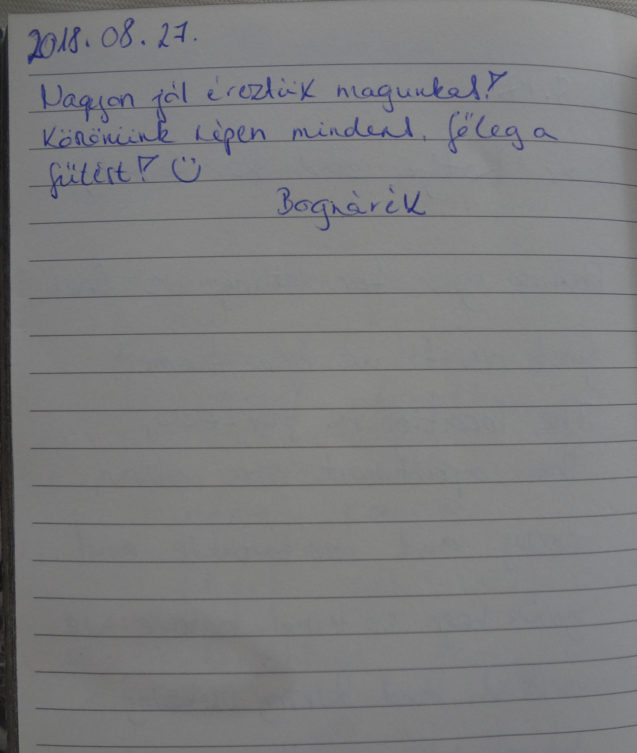 2018. 08. 27.
Nagyon jól éreztük magunkat!
Köszönünk szépen mindent, főleg a
fűtést! :)
Bognárék